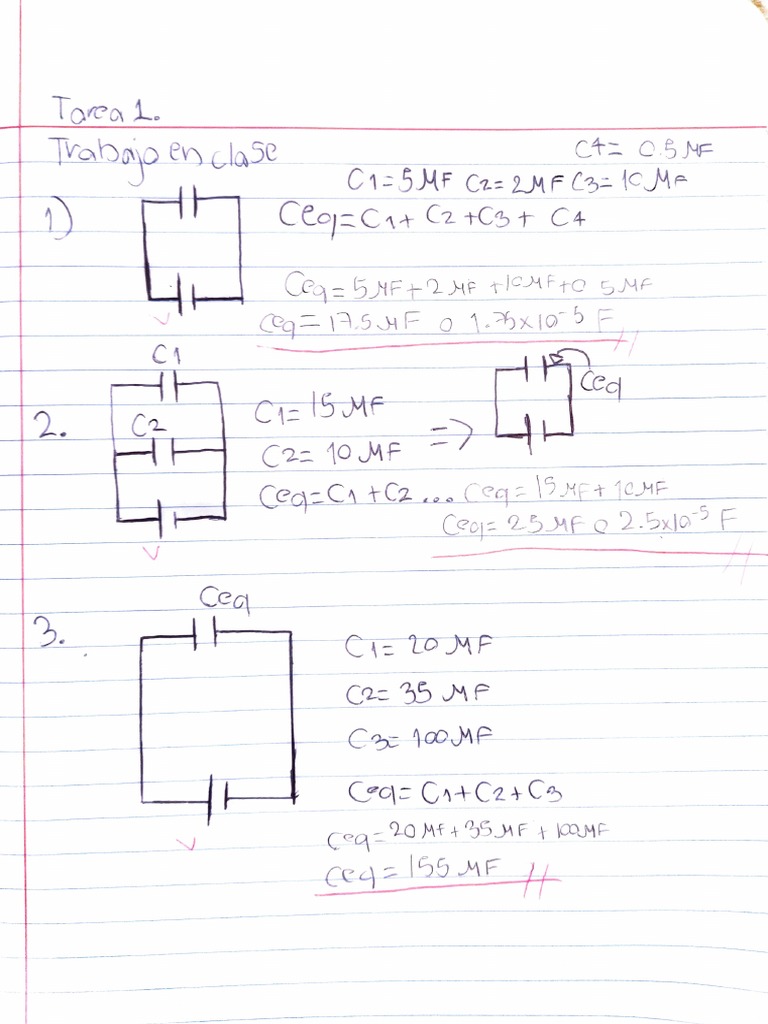 Tarea 1.
Trabajo en clase
C4= 0.5 MF
C1=5MF C2=2MF C3=10MF
1)
Ceq=C1+C2+C3+C4
Ceq=5MF+2MF+10MF+0 5MF
Ceq=17.5MF o 1.75x10-5 F
V
C1
Ceq
2.
C2
C1=15MF
=>
C2=10MF
Ceq=C1+C2... Ceq=15MF+10MF
Ceq=25MF o 2.5x10-5 F
V
Ceq
3.
C1=20MF
C2=35 MF
C3=100MF
Ceq=C1+C2+C3
Ceq=20MF+35MF+100MF
V
Ceq=155MF